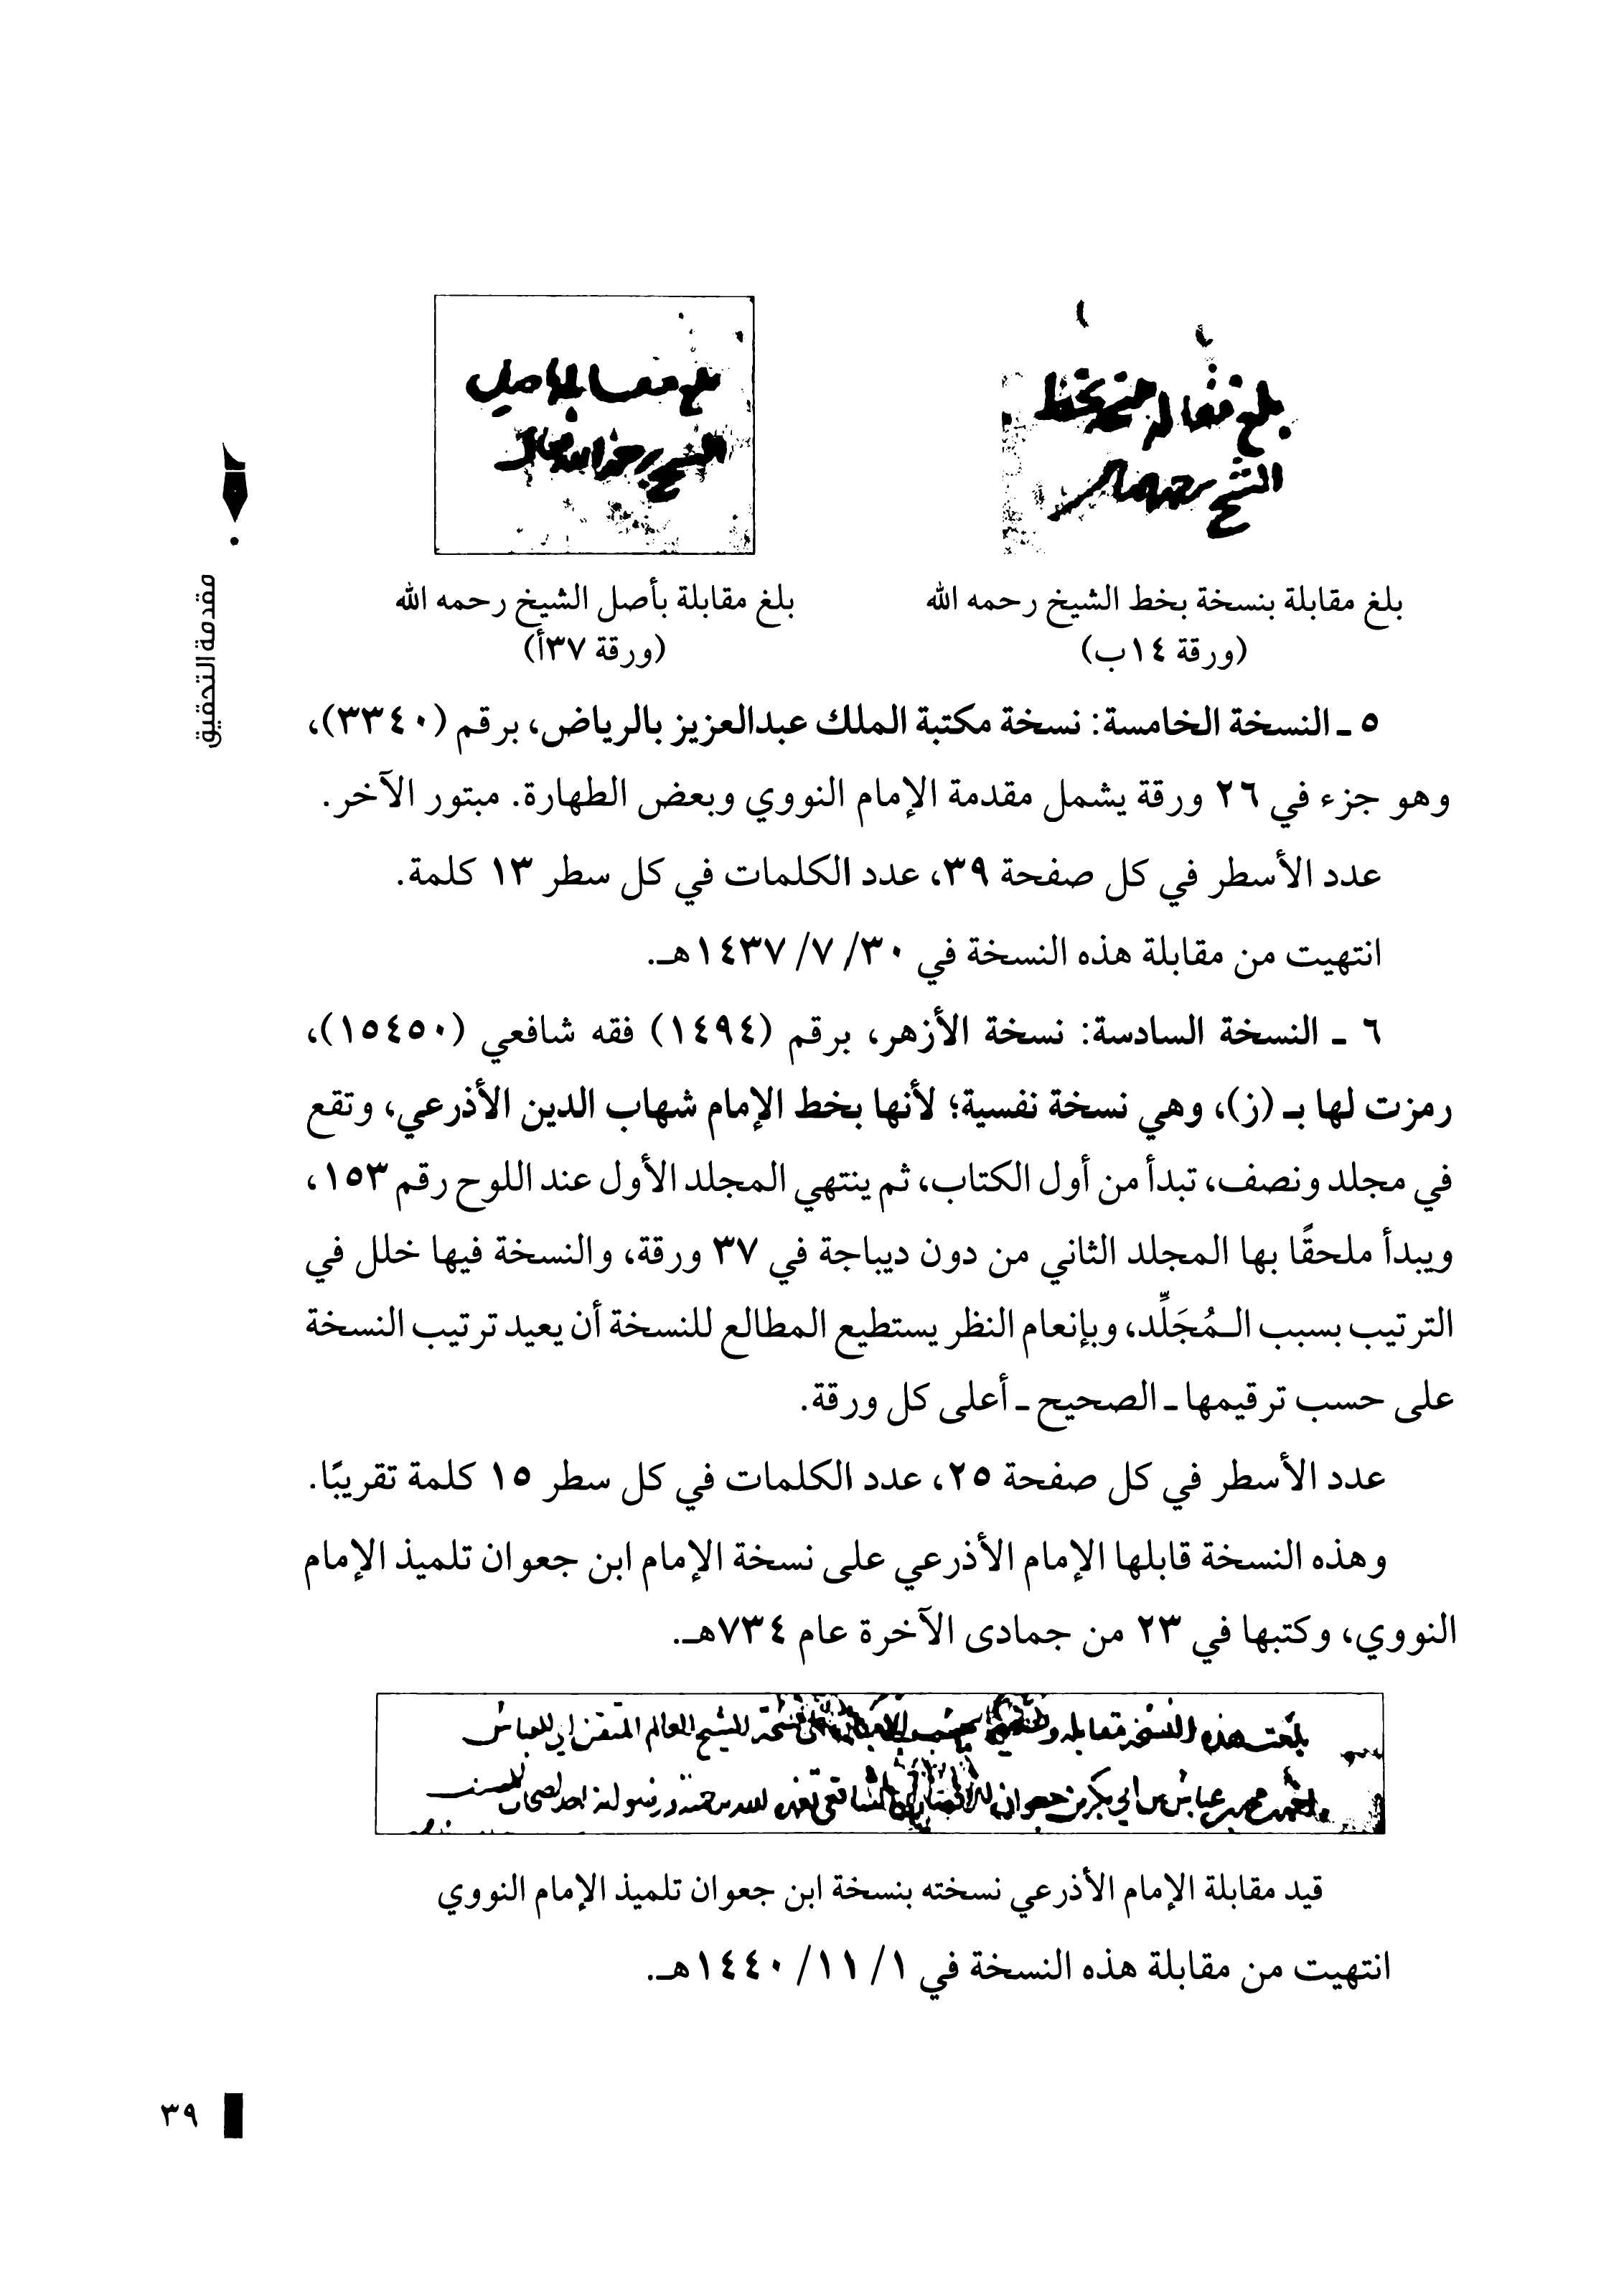 بلغ مقابلة بنسخة بخط
الشيخ رحمه الله
بلغ مقابلة بأصل
الشيخ رحمه الله تعالى
بلغ مقابلة بنسخة بخط الشيخ رحمه الله
(ورقة ١٤ب)
بلغ مقابلة بأصل الشيخ رحمه الله
(ورقة ٣٧أ)
مقدمة التحقيق
٥ ـ النسخة الخامسة: نسخة مكتبة الملك عبدالعزيز بالرياض، برقم (٣٣٤٠)،
وهو جزء في ٢٦ ورقة يشمل مقدمة الإمام النووي وبعض الطهارة. مبتور الآخر.
عدد الأسطر في كل صفحة ٣٩، عدد الكلمات في كل سطر ١٣ كلمة.
انتهيت من مقابلة هذه النسخة في ٣٠/ ٧/ ١٤٣٧هـ.
٦ ـ النسخة السادسة: نسخة الأزهر، برقم (١٤٩٤) فقه شافعي (١٥٤٥٠)،
رمزت لها بـ (ز)، وهي نسخة نفسية؛ لأنها بخط الإمام شهاب الدين الأذرعي، وتقع
في مجلد ونصف، تبدأ من أول الكتاب، ثم ينتهي المجلد الأول عند اللوح رقم ١٥٣،
ويبدأ ملحقًا بها المجلد الثاني من دون ديباجة في ٣٧ ورقة، والنسخة فيها خلل في
الترتيب بسبب الـمُجَلِّد، وبإنعام النظر يستطيع المطالع للنسخة أن يعيد ترتيب النسخة
على حسب ترقيمها ـ الصحيح ـ أعلى كل ورقة.
عدد الأسطر في كل صفحة ٢٥، عدد الكلمات في كل سطر ١٥ كلمة تقريبًا.
وهذه النسخة قابلها الإمام الأذرعي على نسخة الإمام ابن جعوان تلميذ الإمام
النووي، وكتبها في ٢٣ من جمادى الآخرة عام ٧٣٤هـ.
بلغت هذه النسخة مقابلة نسخة الشيخ العالم المتقن ابي العباس
احمد بن محمد بن عباس بن ابي بكر بن جعوان الانصاري الشافعي تغمده الله برحمته ورضوانه احد اصحاب المصنف
قيد مقابلة الإمام الأذرعي نسخته بنسخة ابن جعوان تلميذ الإمام النووي
انتهيت من مقابلة هذه النسخة في ١/ ١١/ ١٤٤٠هـ.
٣٩